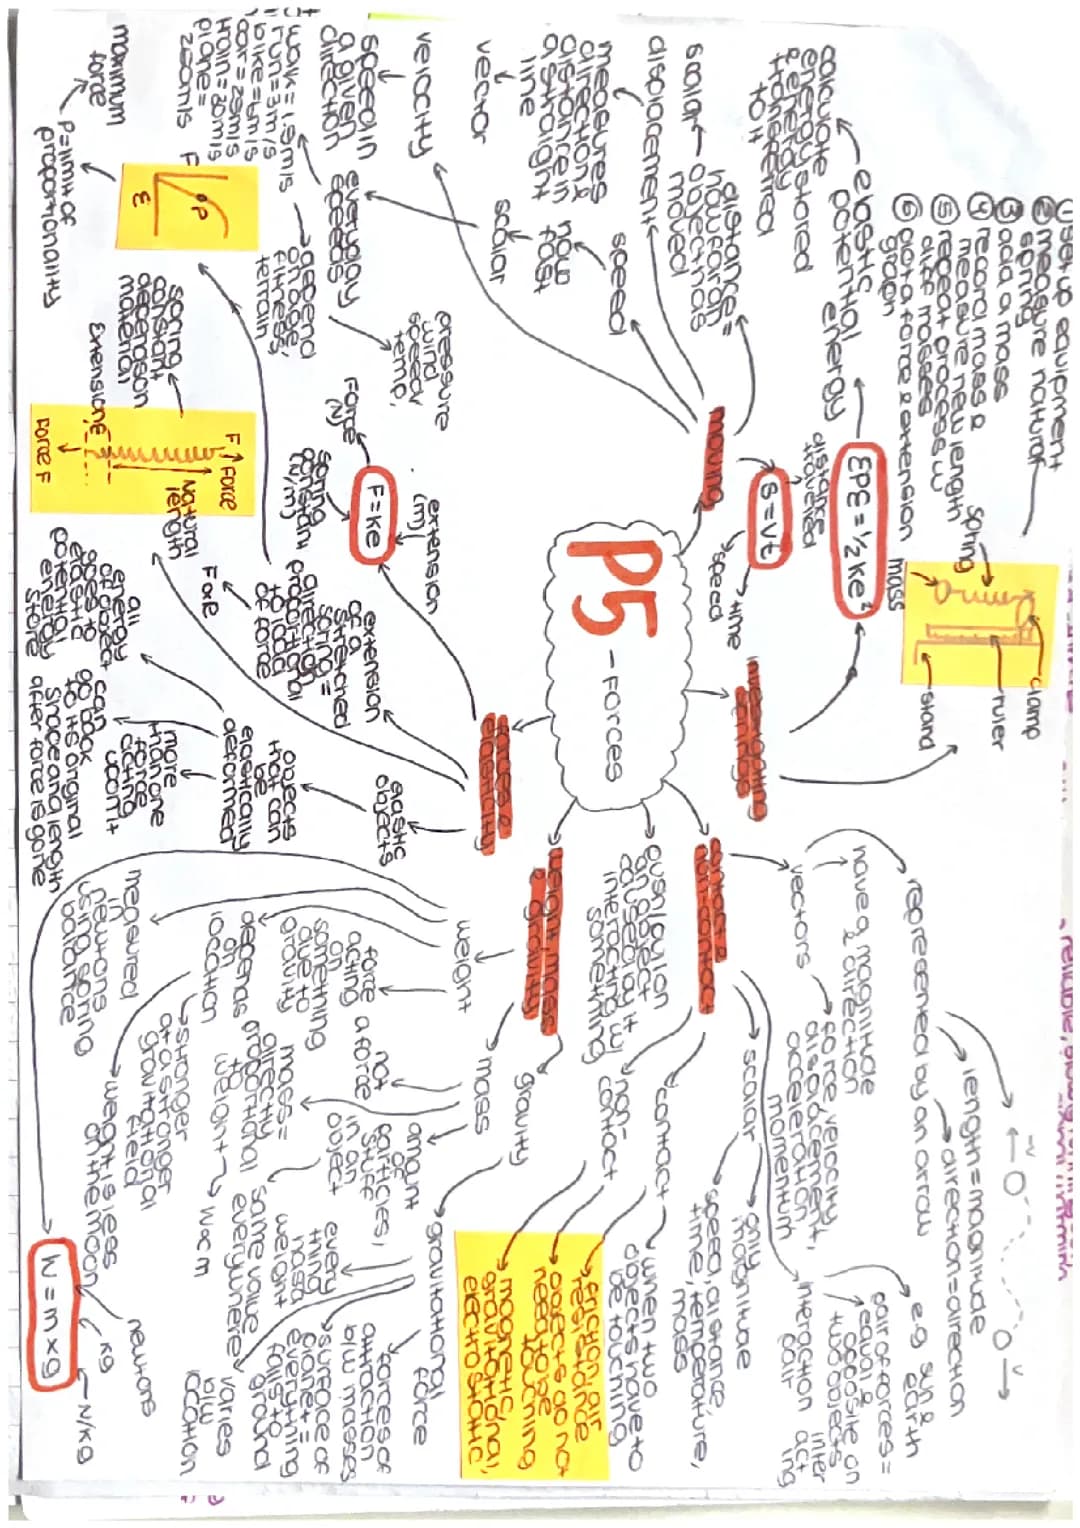 P5
-Forces
moving
s = vt
distance
travelled
speed
time
distance =
how far an
object has
moved
scalar
displacement
measures
direction &
distance in
a straight
line
vector
speed
how
fast
scalar
velocity
speed in
a given
direction
everyday
speeds
walk = 1.5m/s
run = 3m/s
bike = 6m/s
car = 25m/s
train = 30m/s
plane =
250m/s
depend
on age,
fitness,
terrain
pressure
wind
speed
temp.
investigating
springs
EPE = ½ke²
elastic
potential
energy
calculate
energy stored
& energy
transferred
to it
① set up equipment
② measure natural
spring
③ add a mass
④ record mass &
measure new length
⑤ repeat process w
diff masses
⑥ plot a force & extension
graph
mass
spring
clamp
ruler
stand
forces &
elasticity
F = ke
Force
(N)
spring
constant
(N/m)
extension
(m)
extension
of a
stretched
spring =
directional
proportional
to load
of force
F
e
P
P = limit of
proportionality
maximum
force
F ∝ e
spring
constant
depends on
material
Extension E
Force
F
Natural
length
Force F
elastic
objects
objects
that can
be
elastically
deformed
more
than one
force
acting
upon it
can
go back
to its original
shape and length
after force is gone
all
energy
goes to
elastic
potential
energy
store
contact &
non contact
vectors
have a magnitude
& direction
force velocity,
displacement,
acceleration,
momentum
represented by an arrow
length = magnitude
direction = direction
v
v
scalar
only
magnitude
speed, distance,
time, temperature,
mass
interaction
pair
pair of forces =
equal &
opposite on
two objects
inter
act
ing
e.g sun &
earth
contact
when two
objects have to
be touching
friction, air
resistance
non-
contact
objects do not
need to be
touching
magnetic,
gravitational,
electrostatic
push/pull on
an object
caused by it
interacting w
something
weight, mass
& gravity
gravity
gravitational
force
forces of
attraction
b/w masses
surface of
planet =
everything
falls to
ground
varies
b/w
location
mass
not
a force
amount
of
particles/
stuff
in an
object
mass =
directly
proportional
to
weight → W ∝ m
same value
everywhere
every
thing
has a
weight
weight
force
acting
on
something
due to
gravity
depends
on
location
stronger
at a stronger
gravitational
field
weight is less
on the moon
measured
in
newtons
using spring
balance
W = m x g
newtons
kg
N/kg